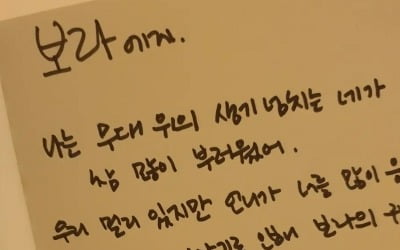 보라에게.
나는 무대 위의 생기 넘치는 네가
참 많이 부러웠어.
우리 멀리 있지만 언니가 너를 많이 응
인해 보라의